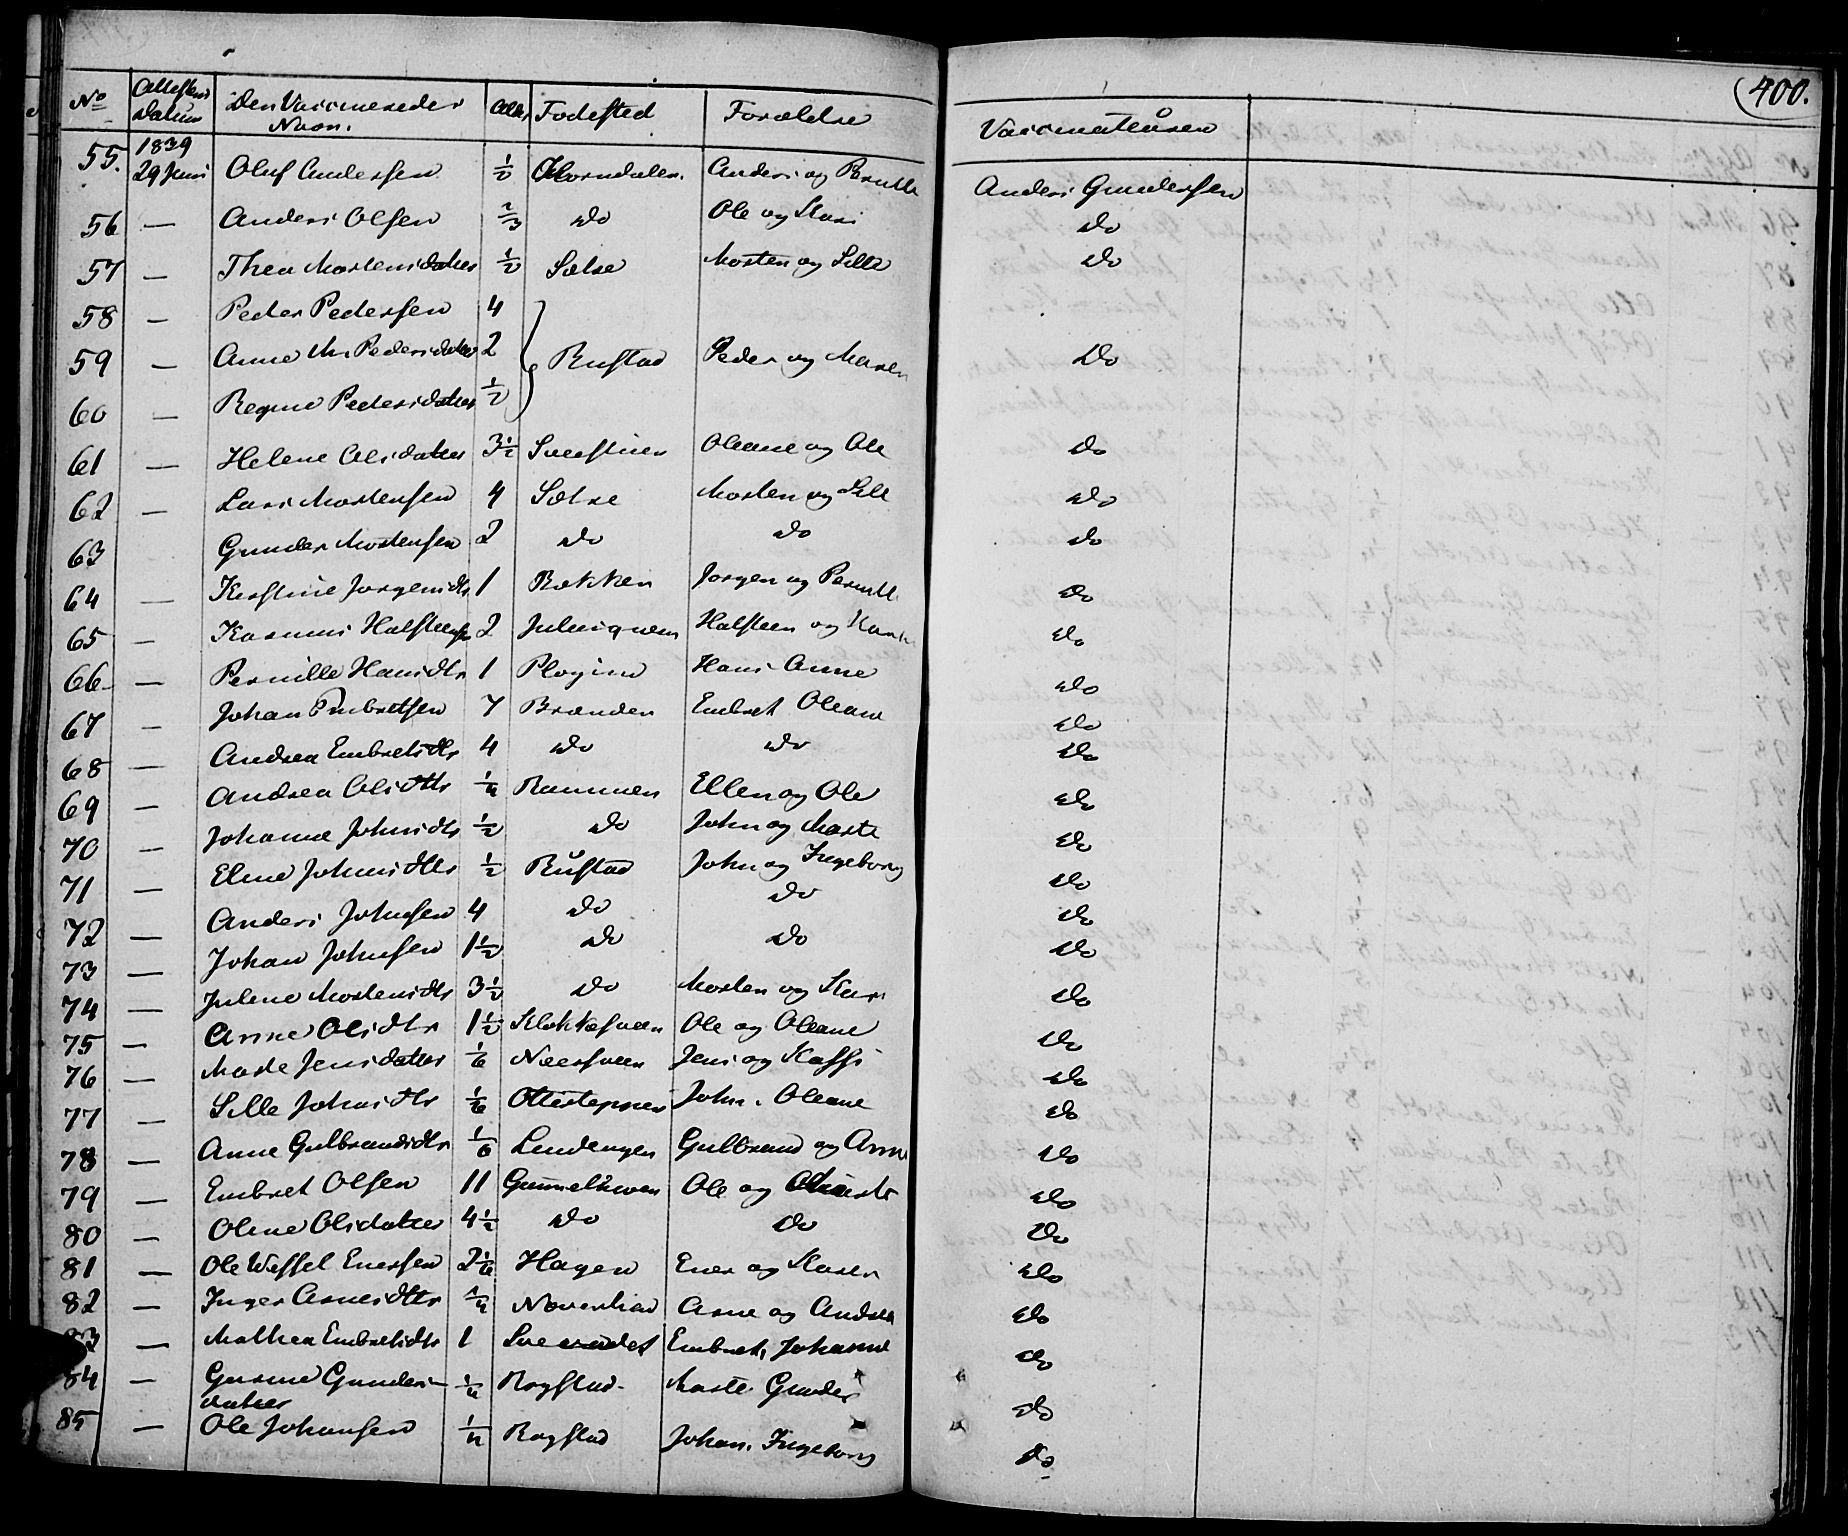 400.
No Attestens Datum Den Vaccineredes Navn. Alder Fødested Forældre Vaccinateuren
1839
55. 29 Juni Oluf Andersen ½ Anders og Pernille Anders Gundersen
56 — Anders Olsen ⅔ Do Ole og Kari Do
57 — Thea Mortensdatter ½ Sætre Morten og Sille Do
58 — Peder Pedersen 4
59 — Anne M. Pedersdatter 2 Rustad Peder og Maren Do
60 — Regine Pedersdatter ½
61 — Helene Olsdatter 3½ Oleane og Ole Do
62 — Lars Mortensen 4 Sætre Morten og Sille Do
63 Gunder Mortensen 2 Do Do Do
64 — Kirstine Jørgensdtr 1 Bakken Jørgen og Pernille Do
65 — Rasmus Halstensen 2 Halsteen og Do
66 — Pernille Hansdtr 1 Hans Anne Do
67 — Johan Embretsen 7 Brænden Embret Oleane Do
68 — Andrea Embretsdtr 4 Do Do Do
69 — Andrea Olsdtr ¼ Rammen Ellen og Ole Do
70 — Johanne Johnsdtr ½ Do John og Marte Do
71 — Eline Johnsdtr ½ Rustad John og Ingeborg Do
72 — Anders Johnsen 4 Do Do Do
73 — Johan Johnsen 1½ Do Do Do
74 — Juline Mortensdtr 3½ Do Morten og Kari Do
75 — Anne Olsdtr 1½ Klokkesveen Ole og Oleane Do
76 — Marte Jensdatter ⅙ Neersveen Jens og Do
77 — Sille Johnsdtr ⅙ John. Oleane Do
78 — Anne Gulbrandsdtr ⅙ Lindengen Gulbrand og Anne Do
79 — Embret Olsen 11 Ole og Do
80 — Oline Olsdatter 4½ Do Do Do
81 — Ole Wessel Enersen 2⅙ Hagen Ener og Karen Do
82 — Inger Arnesdtr ¼ Arne og Andrea Do
83 — Mathea Embretsdtr 1 Embret, Johanne Do
84 — Gurine Gunders- ¼ Rogstad. Marte Gunder Do
datter
85 — Ole Johansen ¼ Rogstad Johan. Ingeborg Do